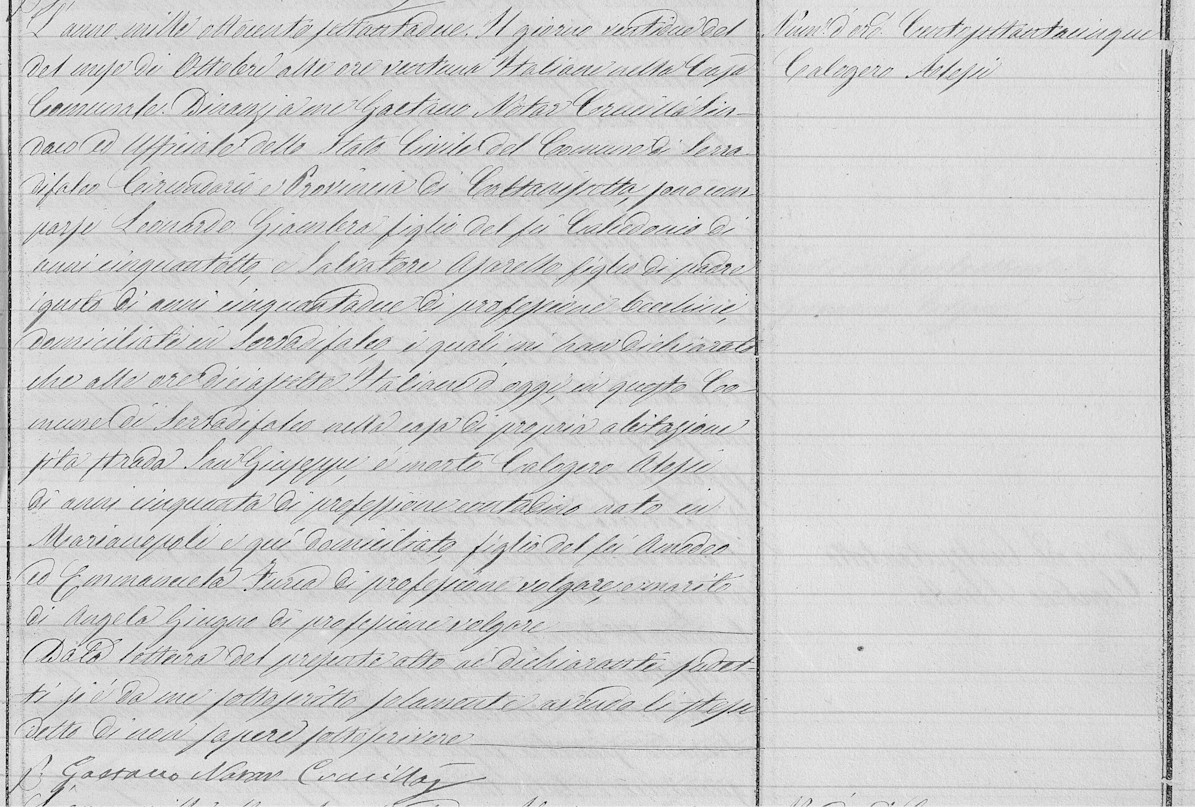 L'anno mille ottocento settantadue. Il giorno ventitre del
del mese di Ottobre alle ore ventuna Italiane nella Casa
Comunale. Dinanzi a me Gaetano Notar Crucillà Sin-
daco ed Uffiziale dello Stato Civile del Comune di Serra-
difalco Circondario e Provincia di Caltanissetta, sono com-
parsi Leonardo Giambra figlio del fu Calcedonio di
anni cinquantotto, e Salvatore figlio di padre
ignoto di anni cinquantadue di professione
domiciliati in Serradifalco, i quali mi han dichiarato
che alle ore diciassette Italiane d'oggi, in questo Co-
mune di Serradifalco nella casa di propria abitazione
sita strada San Giuseppe, è morto Calogero Alessi
di anni cinquanta di professione contadino nato in
Marianopoli e qui domiciliato, figlio del fu Amodeo
ed Emmanuela Furia di professione volgare, e marito
di Angela Giugno di professione volgare
Data lettura del presente atto ai dichiaranti sudet-
ti si è da me sottoscritto solamente avendo li stessi
detto di non sapere sottoscrivere
Gaetano Notar Crucillà
Num. d'ord. Centosettantacinque
Calogero Alessi